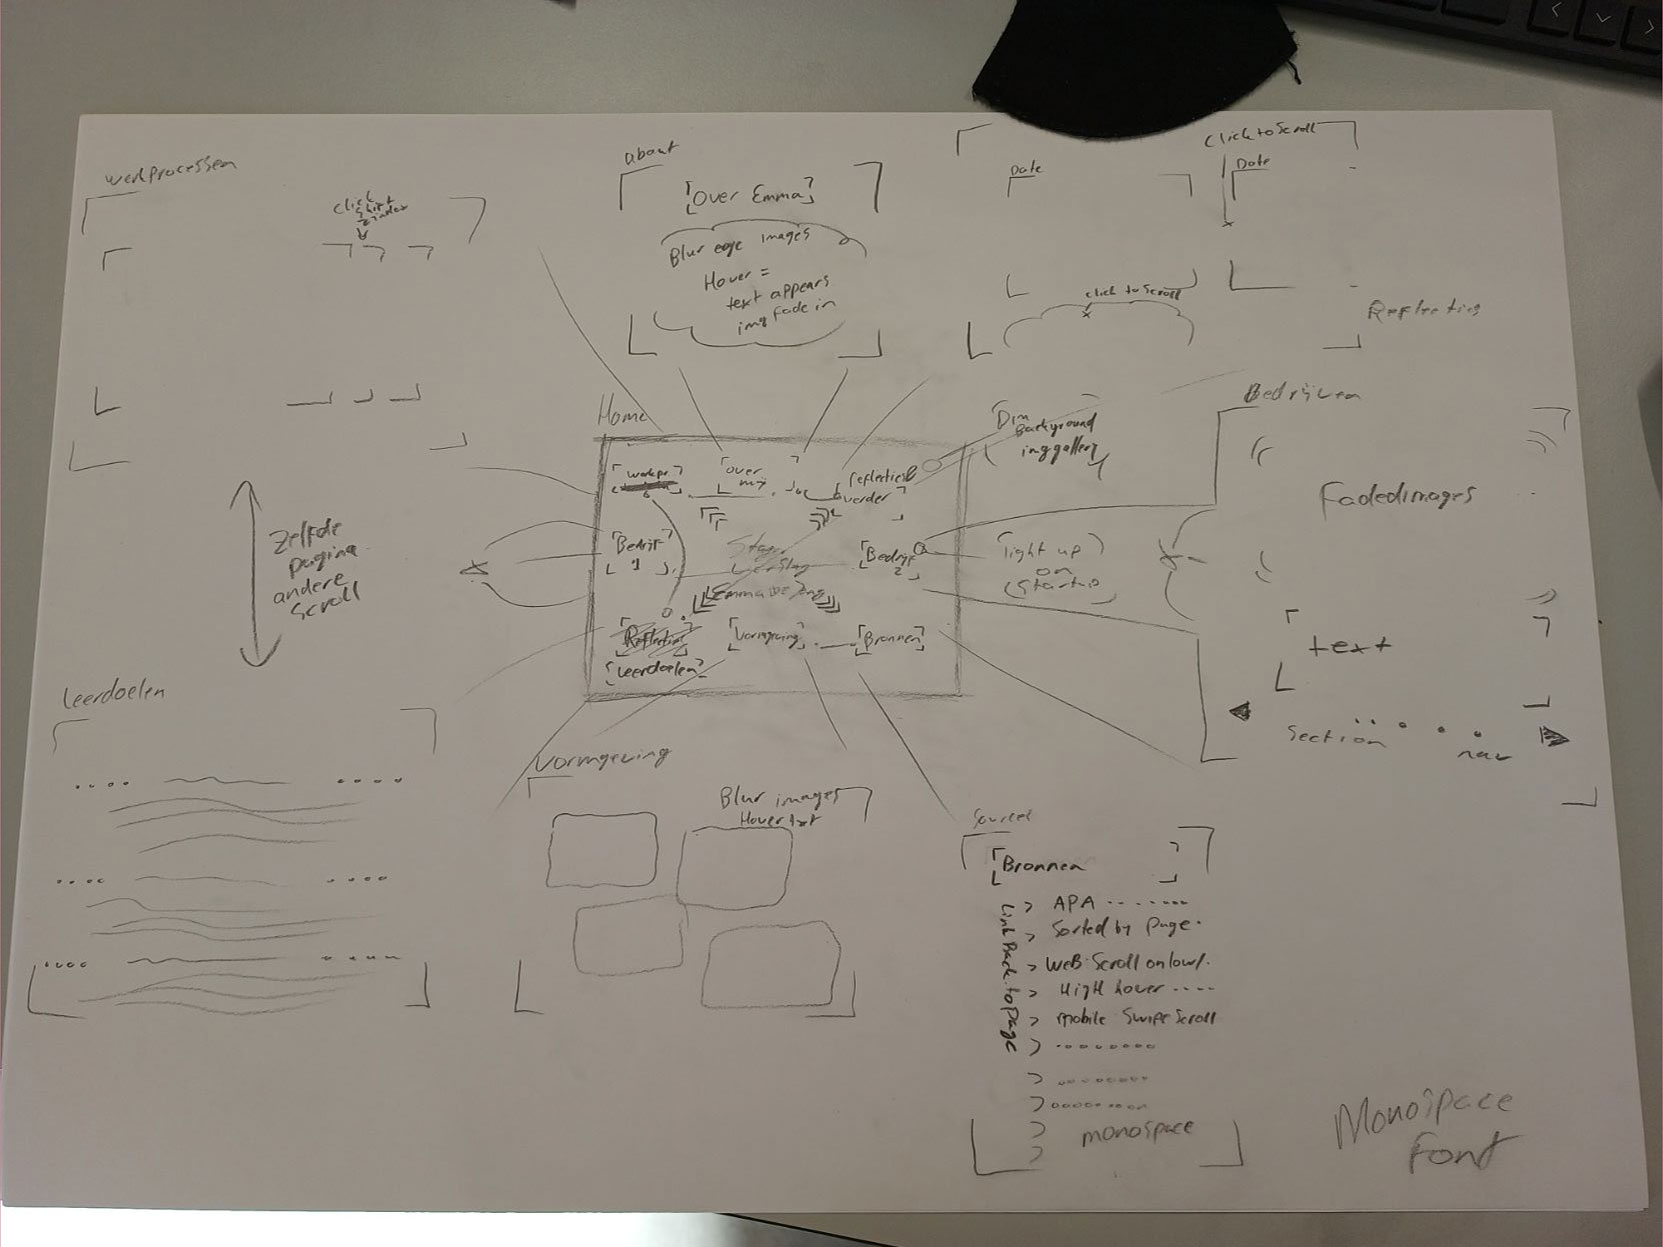 werkprocessen
Click
shift
about
Over Emma
Blur edge images
Hover =
text appears
img fade in
Date
Click to Scroll
Date
click to Scroll
Reflecties
Home
werkpr.
over
mij
reflecties
verder
Bedrijf
1
Bedrijf
2
Emma de Jong
Reflecties
Leerdoelen
Vormgeving
Bronnen
Dim
Background
img gallery
light up
on
Startup
Bedrijven
Faded images
text
Section
nav
Zelfde
pagina
andere
Scroll
Leerdoelen
Vormgeving
Blur images
Hover txt
Sources
Bronnen
Link Back to page
> APA
> Sorted by page.
> WEB: Scroll on low/.
> High hover ----
> mobile Swipe Scroll
monospace
Monospace
Font